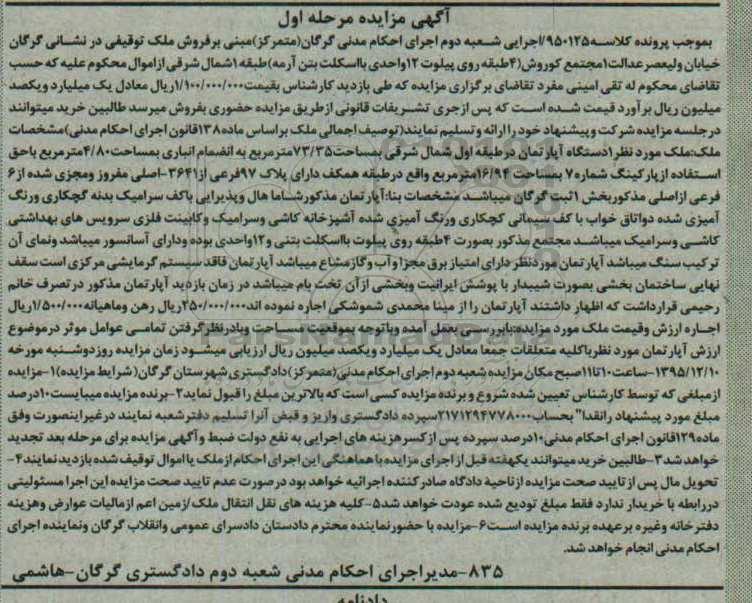 آگهی مزایده مرحله اول
بموجب پرونده کلاسه۹۵۰۱۲۵/اجرایی شعبه دوم اجرای احکام مدنی گرگان(متمرکز)مبنی برفروش ملک توقیفی در نشانی گرگان
خیابان ولیعصرعدالت۱مجتمع کوروش(۴طبقه روی پیلوت ۱۲واحدی بااسکلت بتن آرمه)طبقه۱شمال شرقی ازاموال محکوم علیه که حسب
تقاضای محکوم له تقی امینی مفرد تقاضای برگزاری مزایده که طی بازدید کارشناس بقیمت۱/۱۰۰/۰۰۰/۰۰۰ریال معادل یک میلیارد ویکصد
میلیون ریال برآورد قیمت شده است که پس ازجری تشریفات قانونی ازطریق مزایده حضوری بفروش میرسد طالبین خرید میتوانند
درجلسه مزایده شرکت وپیشنهاد خود راارائه وتسلیم نمایند(توصیف اجمالی ملک براساس ماده۱۳۸قانون اجرای احکام مدنی)مشخصات
ملک:ملک مورد نظر۱دستگاه آپارتمان درطبقه اول شمال شرقی بمساحت۷۳/۳۵مترمربع به انضمام انباری بمساحت۴/۸۰مترمربع باحق
استفاده ازپارکینگ شماره۷ بمساحت ۱۶/۹۴مترمربع واقع درطبقه همکف دارای پلاک ۹۷فرعی از۳۶۴۱-اصلی مفروز ومجزی شده از۶
فرعی ازاصلی مذکوربخش ۱ثبت گرگان میباشد مشخصات بنا:آپارتمان مذکورشاما هال وپذیرایی باکف سرامیک بدنه گچکاری ورنگ
آمیزی شده دواتاق خواب با کف سیمانی گچکاری ورنگ آمیزی شده آشپزخانه کاشی وسرامیک وکابینت فلزی سرویس های بهداشتی
کاشی وسرامیک میباشد مجتمع مذکور بصورت ۴طبقه روی پیلوت بااسکلت بتنی و۱۲واحدی بوده ودارای آسانسور میباشد ونمای آن
ترکیب سنگ میباشد آپارتمان موردنظر دارای امتیاز برق مجزا وآب وگازمشاع میباشد آپارتمان فاقد سیستم گرمایشی مرکزی است سقف
نهایی ساختمان بخشی بصورت شیبدار با پوشش ایرانیت وبخشی ازآن تخت بام میباشد در زمان بازدید آپارتمان مذکور درتصرف خانم
رحیمی قرارداشت که اظهار داشتند آپارتمان را از مینا محمدی شموشکی اجاره نموده اند۲۵۰/۰۰۰/۰۰۰ریال رهن وماهیانه۱/۵۰۰/۰۰۰ریال
اجاره ارزش وقیمت ملک مورد مزایده:بابررسی بعمل آمده وباتوجه بموقعیت مساحت وبادرنظرگرفتن تمامی عوامل موثر درموضوع
ارزش آپارتمان مورد نظرباکلیه متعلقات جمعا معادل یک میلیارد ویکصد میلیون ریال ارزیابی میشود زمان مزایده روزدوشنبه مورخه
۱۳۹۵/۱۲/۱۰-ساعت۱۰تا۱۱صبح مکان مزایده شعبه دوم اجرای احکام مدنی(متمرکز)دادگستری شهرستان گرگان(شرایط مزایده)۱-مزایده
ازمبلغی که توسط کارشناس تعیین شده شروع وبرنده مزایده کسی است که بالاترین مبلغ را قبول نماید۲-برنده مزایده میبایست۱۰درصد
مبلغ مورد پیشنهاد رانقدا" بحساب۲۱۷۱۲۹۴۷۷۸۰۰۰سپرده دادگستری واریز و قبض آنرا تسلیم دفترشعبه نمایند درغیراینصورت وفق
ماده۱۲۹قانون اجرای احکام مدنی۱۰درصد سپرده پس ازکسرهزینه های اجرایی به نفع دولت ضبط وآگهی مزایده برای مرحله بعد تجدید
خواهد شد۳-طالبین خرید میتوانند یکهفته قبل از اجرای مزایده باهماهنگی این اجرای احکام ازملک یااموال توقیف شده بازدید نمایند۴-
تحویل مال پس ازتایید صحت مزایده ازناحیهٔ دادگاه صادرکننده اجرائیه خواهد بود درصورت عدم تایید صحت مزایده این اجرا مسئولیتی
دررابطه با خریدار ندارد فقط مبلغ تودیع شده عودت خواهد شد۵-کلیه هزینه های نقل انتقال ملک/زمین اعم ازمالیات عوارض وهزینه
دفترخانه وغیره برعهده برنده مزایده است۶-مزایده با حضورنماینده محترم دادستان دادسرای عمومی وانقلاب گرگان ونماینده اجرای
احکام مدنی انجام خواهد شد.
۸۳۵-مدیراجرای احکام مدنی شعبه دوم دادگستری گرگان-هاشمی
دادنامه